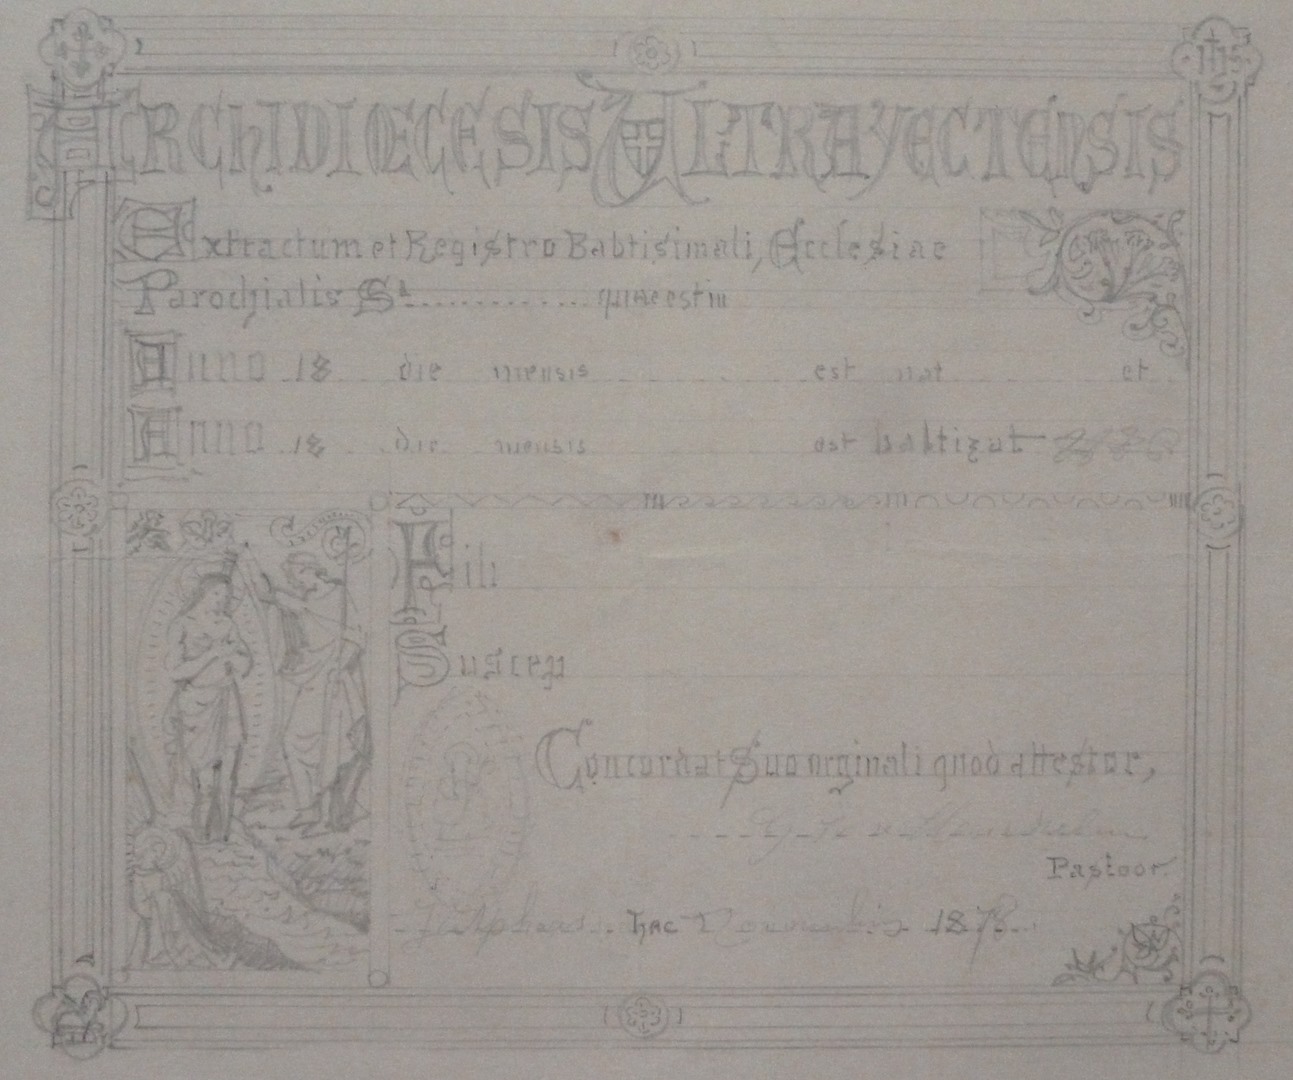 ARCHIDIŒCESIS ULTRAYECTENSIS
Extractum et Registro Babtisimali, Ecclesiae
Parochialis St ............ quae est in
Anno 18 die mensis est nat et
Anno 18 die mensis est babtizat
Fili
Suscep
Concordat Suo orginali quod attestor,
Pastoor
hac Novembris 1878